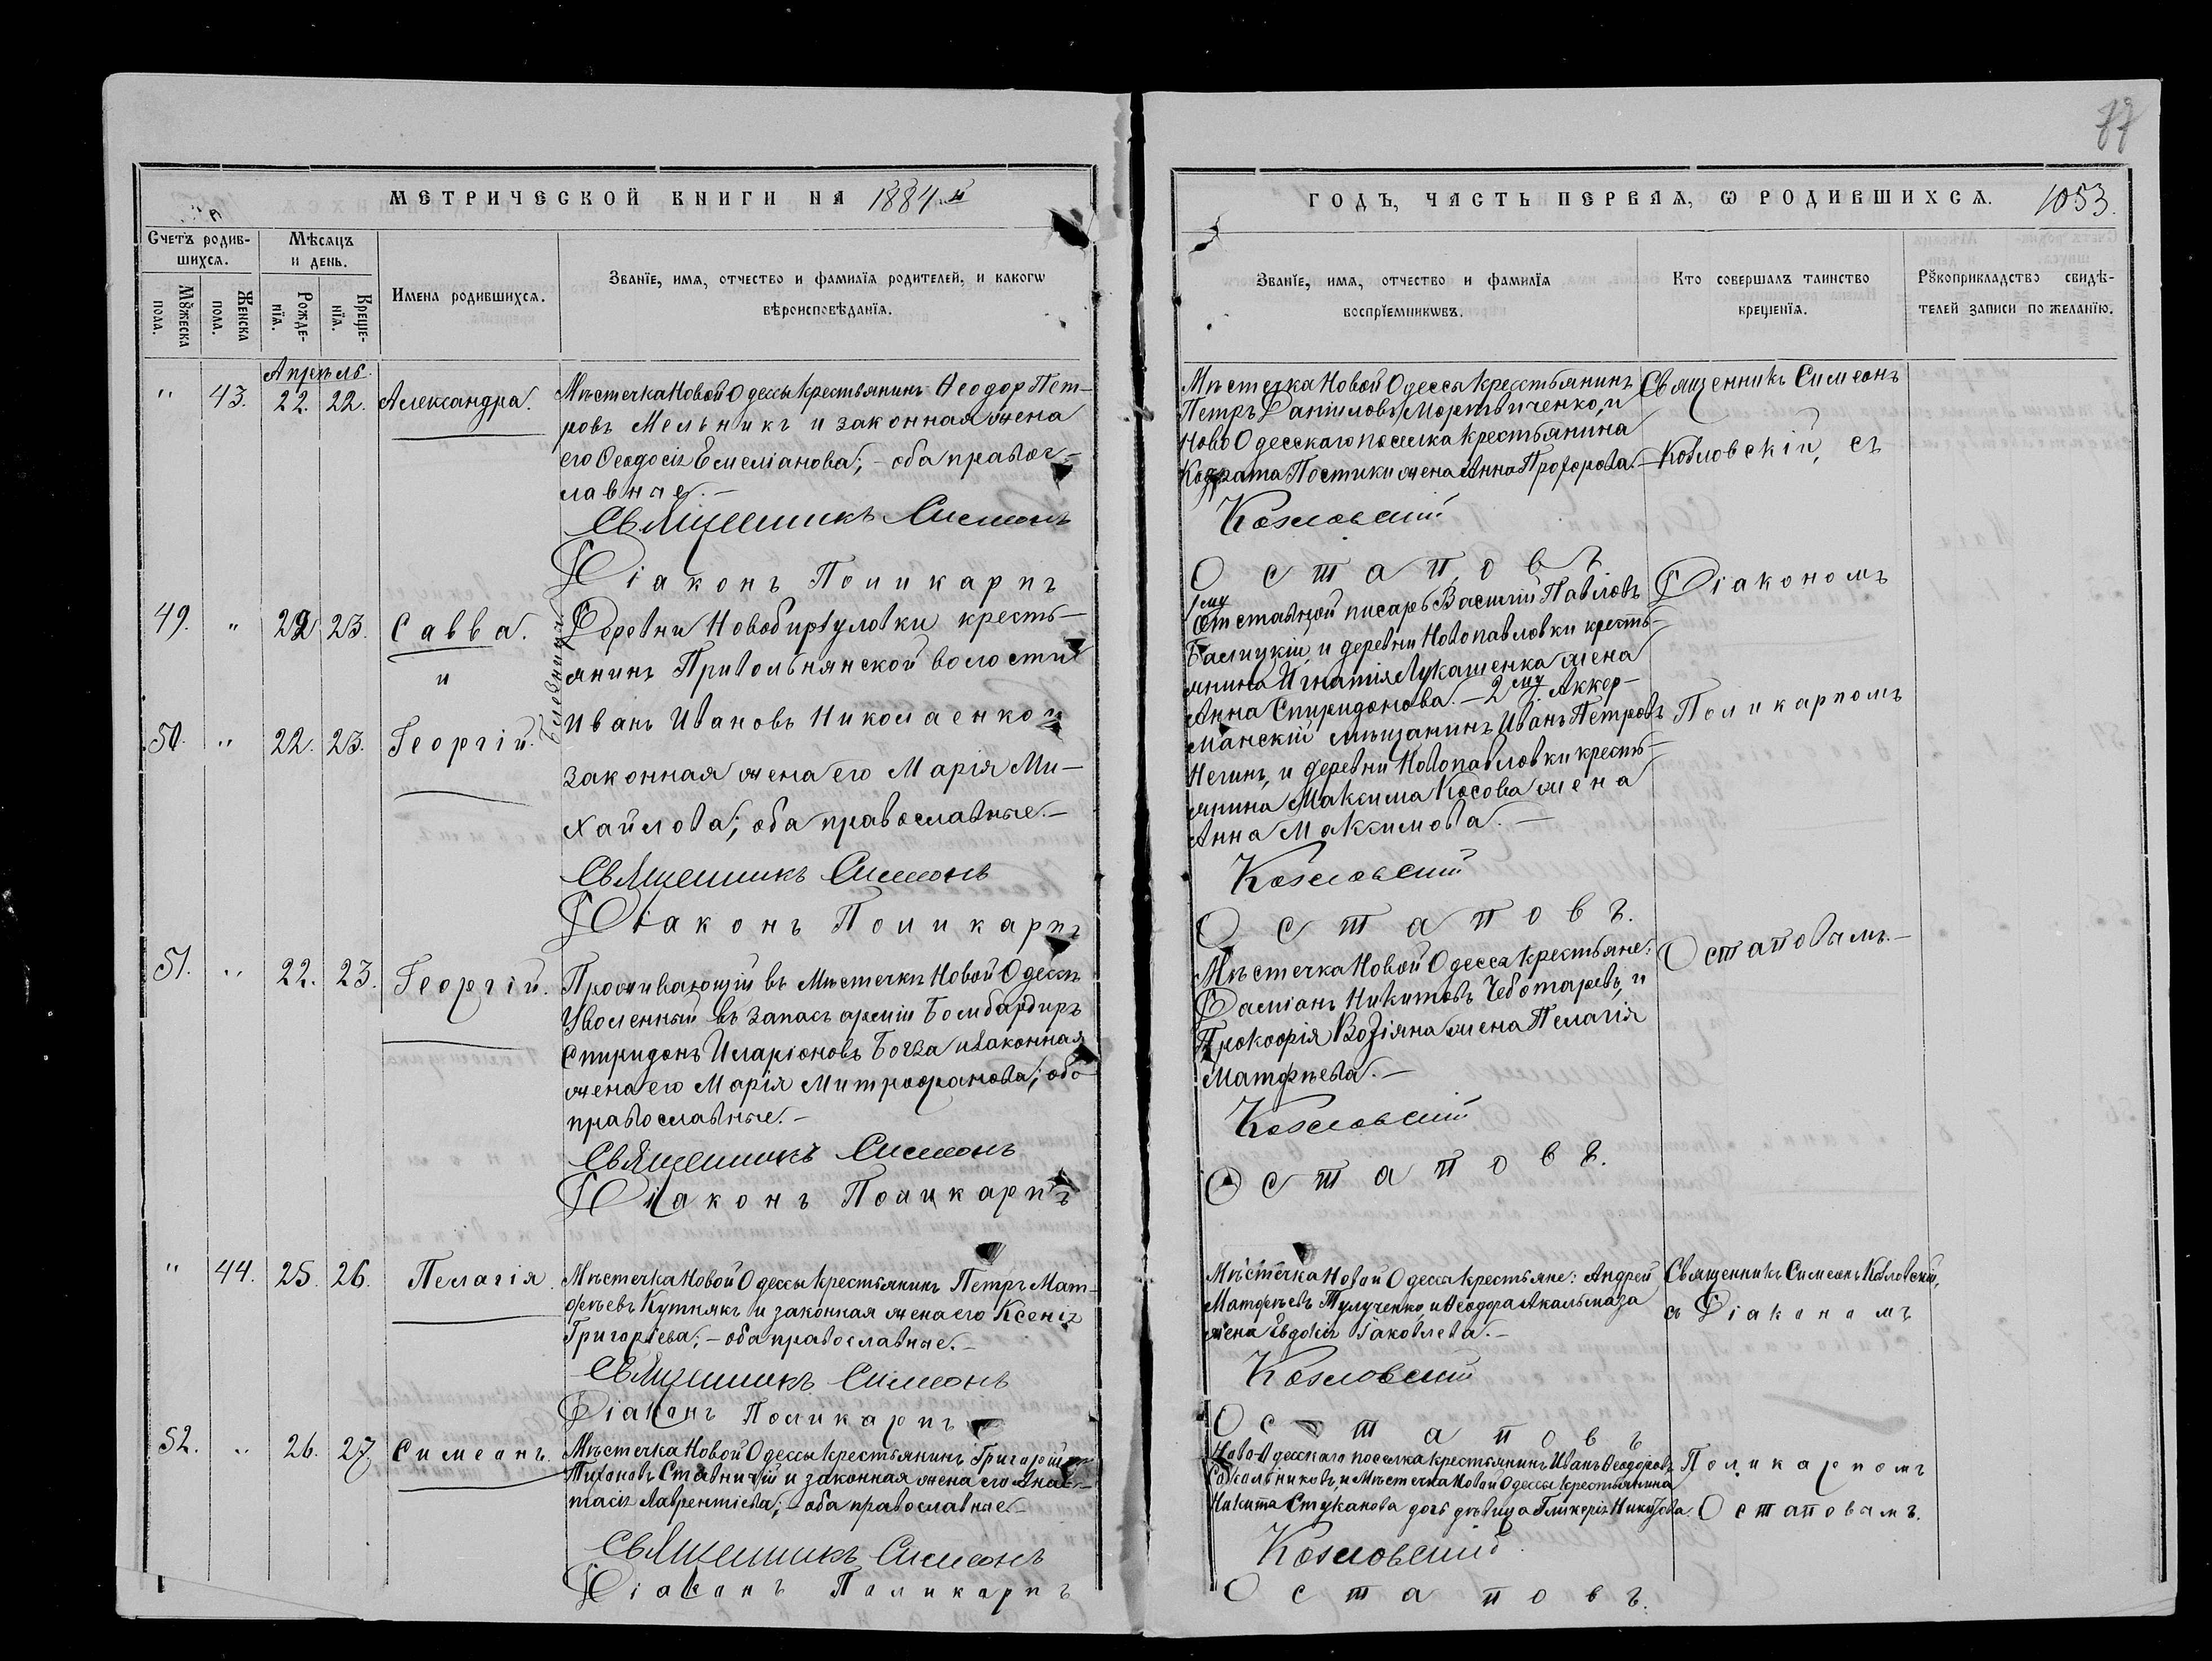 77
МЕТРИЧЕСКОЙ КНИГИ НА 1884.й
ГОДЪ, ЧАСТЬ ПЕРВАЯ, Ѡ РОДИВШИХСЯ. 1053.
Счетъ родив-
шихся.
Мѣсяцъ
и день.
Мꙋжеска
пола.
Женска
пола.
Рожде-
нїя.
Креще-
нїя.
Имена родившихся.
Званїе, имя, отчество и фамилїя родителей, и какогѡ
вѣроисповѣданїя.
Званїе, имя, отчество и фамилїя
воспрїемникѡвъ.
Кто совершалъ таинство
крещенїя.
Рꙋкоприкладство свидѣ-
телей записи по желанїю.
Апрѣль.
" 43. 22. 22. Александра.
Мѣстечка Новой Одессы крестьянинъ Ѳеодор Пет-
ровъ Мельникъ и законная жена
его Ѳеодосія Емеліанова; - оба правос-
лавные. -
Священникъ Симеонъ
Діаконъ Поликарпъ
Мѣстечка Новой Одессы крестьянинъ
Петръ Даніиловъ Мортиченко, и
Ново Одесскаго поселка крестьянина
Кодрата Постики жена Анна Прохорова. -
Козловскій
Остаповъ
Священникъ Симеонъ
Козловскій, съ
49. " 22 23. Савва.
и
50. " 22. 23. Георгій.
близнецы
Деревни Новобиргуловки кресть-
янинъ Привольнянской волости
Иванъ Ивановъ Николаенко и
законная жена его Марія Ми-
хайлова; оба православные. -
Священникъ Симеонъ
Діаконъ Поликарпъ
1му
Отставной писарь Василій Павловъ
Балицкій, и деревни Новопавловки кресть-
янина Игнатія Лукашенка жена
Анна Спиридонова. - 2му. Аккер-
манскій мѣщанинъ Иванъ Петровъ
Негинъ, и деревни Новопавловки кресть-
янина Максима Косова жена
Анна Максимова. -
Козловскій
Остаповъ.
Діакономъ
Поликарпомъ
51. " 22. 23. Георгій.
Проживающій въ Мѣстечкѣ Новой Одессѣ
Уволенный въ запасъ арміи Бомбардиръ
Спиридонъ Иларіоновъ Богза и законная
жена его Марія Митрофанова; оба
православные. -
Священникъ Симеонъ
Діаконъ Поликарпъ
Мѣстечка Новой Одессы крестьяне:
Даміанъ Никитовъ Чеботаревъ, и
Прокофія Возіяна жена Пелагія
Матфѣева. -
Козловскій
Остаповъ.
Остаповымъ. -
" 44. 25. 26. Пелагія.
Мѣстечка Новой Одессы крестьянинъ Петръ Мат-
фѣевъ Кутнякъ и законная жена его Ксенія
Григоріева; - оба православные. -
Священникъ Симеонъ
Діаконъ Поликарпъ
Мѣстечка Новой Одессы крестьяне: Андрей
Матфѣевъ Тулученко, и Ѳеодора Акальмаза
жена Евдокія Іаковлева. -
Козловскій
Остаповъ
Священникъ Симеонъ Козловскій,
съ Діакономъ
52. " 26. 27. Симеонъ.
Мѣстечка Новой Одессы крестьянинъ Григорій
Тихоновъ Ставничій и законная жена его Анас-
тасія Лаврентіева; - оба православные. -
Священникъ Симеонъ
Діаконъ Поликарпъ
Ново-Одесскаго поселка крестьянинъ Иванъ Ѳеодоровъ
Сокольниковъ, и Мѣстечка Новой Одессы крестьянина
Никита Стуканова дочь дѣвица Гликерія Никитова.
Козловскій
Остаповъ.
Поликарпомъ
Остаповымъ.